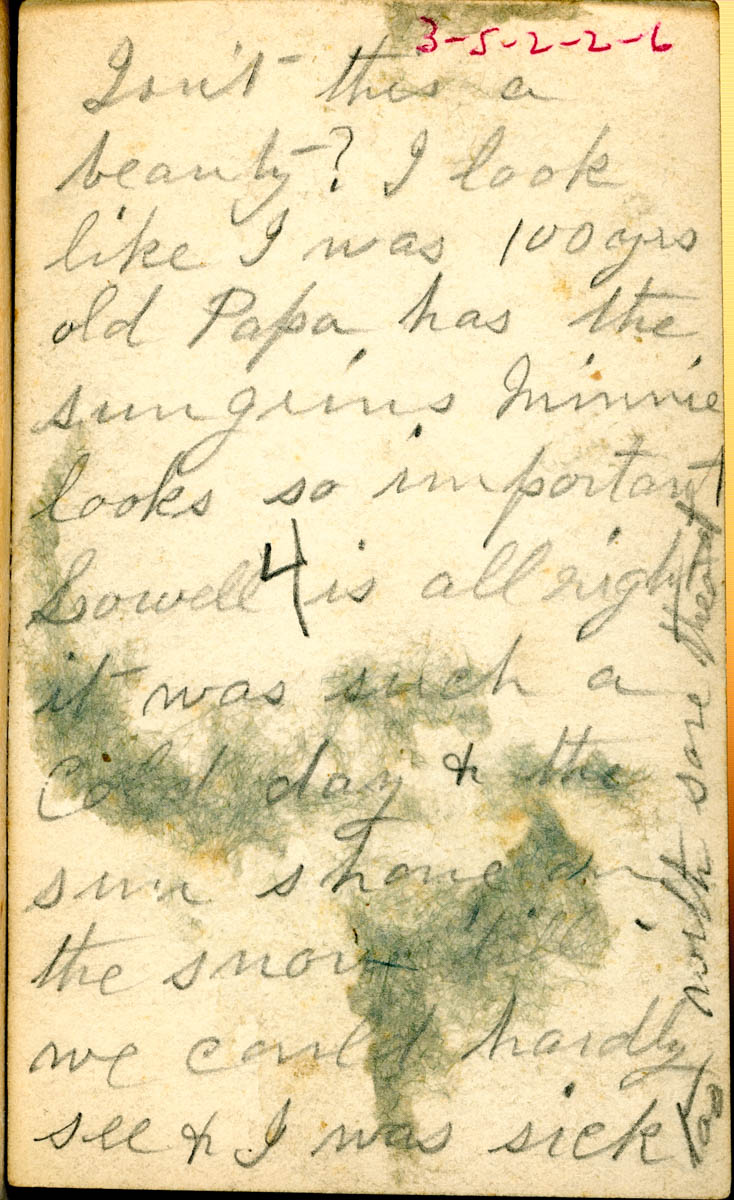 3-5-2-2-6
Isn't this a
beauty? I look
like I was 100 yrs
old Papa has the
sungrins Minnie
looks so important
Lowell is allright
4
it was such a
cold day & the
sun shone on
the snow till
we could hardly
see & I was sick
too with sore throat